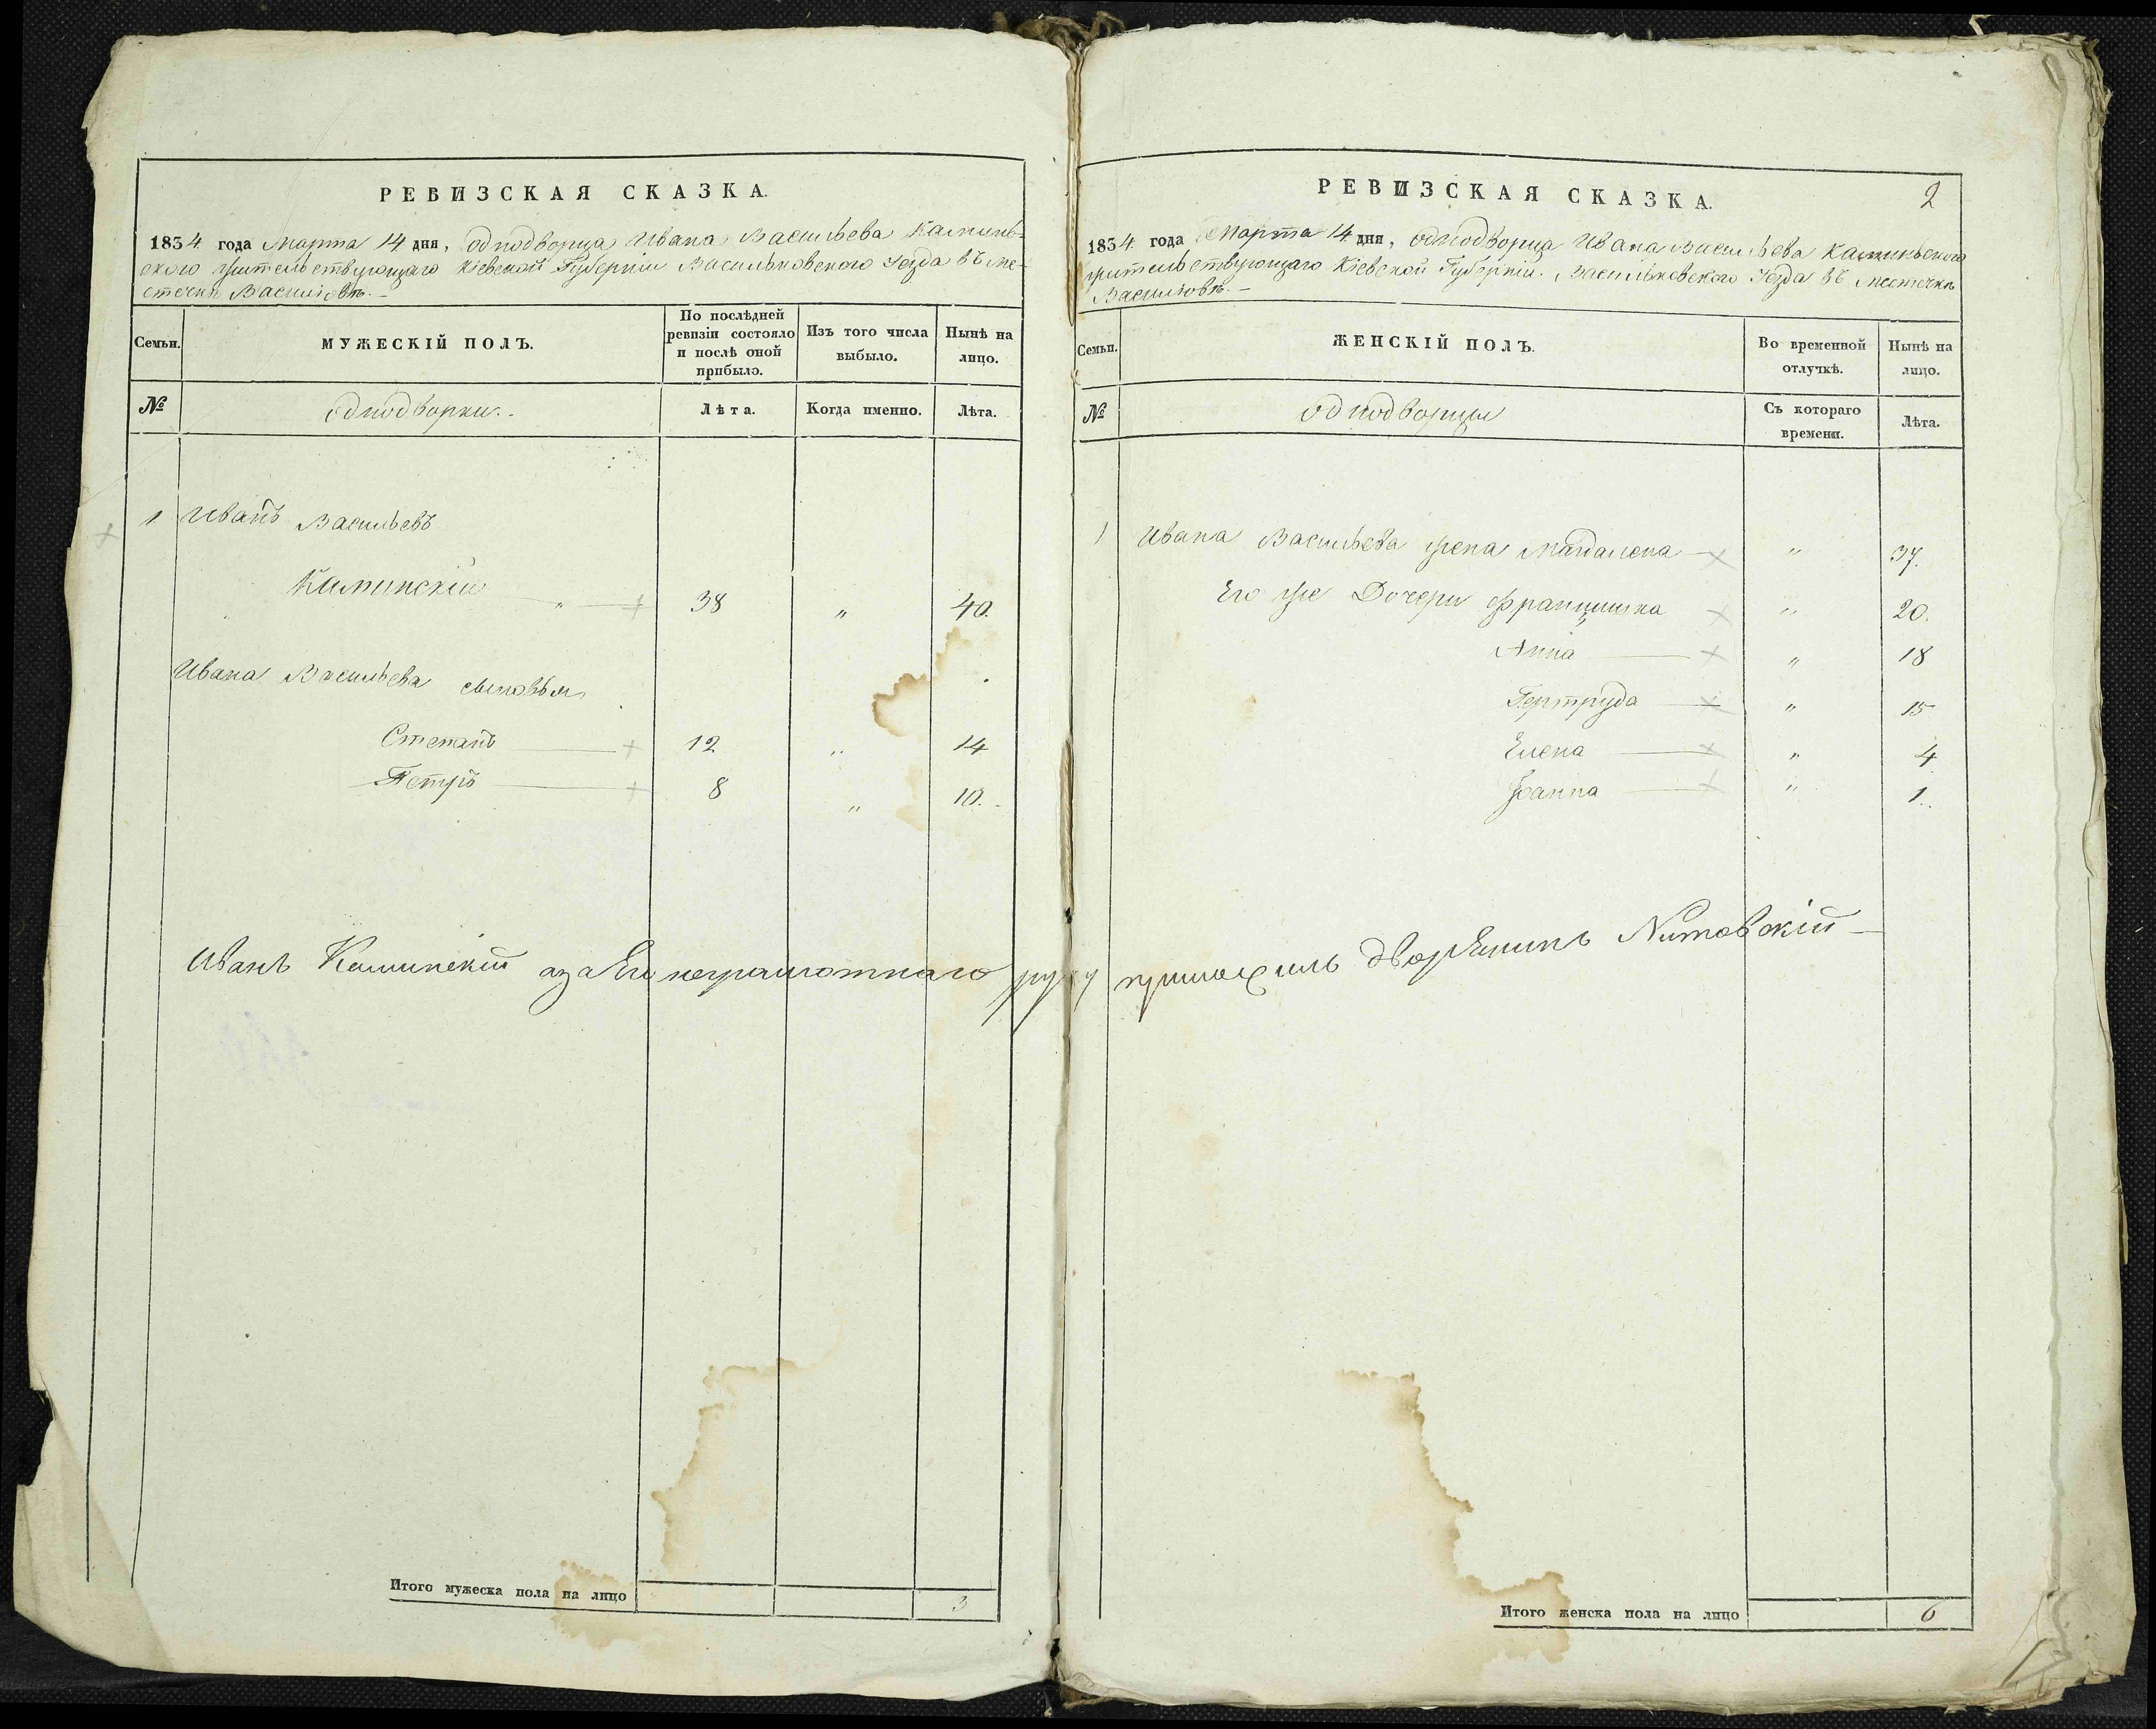 РЕВИЗСКАЯ СКАЗКА.
1834 года Марта 14 дня, однодворца Ивана Васильева Каминь-
ского жительствующаго Кіевской Губерніи Васильковского Уезда въ ме-
стечкѣ Василіовѣ.-
Семьи.
МУЖЕСКІЙ ПОЛЪ.
По послѣдней
ревизіи состояло
и послѣ оной
прибыло.
Изъ того числа
выбыло.
Нынѣ на
лицо.
№
однодворки.
Лѣта.
Когда именно.
Лѣта.
1 Иванъ Васильевъ
Каминскій " 38 " 40.
Ивана Васильева сыновья
Степанъ 12 " 14
Петръ 8 " 10.
Иванъ Каминский а за Его неграмотнаго руку
Итого мужеска пола на лицо 3
2
РЕВИЗСКАЯ СКАЗКА.
1834 года Марта 14 дня, однодворца Ивана Васильева Каминьского
жительствующаго Кіевской Губерніи. Васильковского Уезда въ местечкѣ
Василіовѣ.-
Семьи.
ЖЕНСКІЙ ПОЛЪ.
Во временной
отлучкѣ.
Нынѣ на
лицо.
№
однодворцы
Съ котораго
времени.
Лѣта.
1 Ивана Васильева жена Магдалена " 37.
Его же Дочери Францишка " 20.
Анна " 18
Гертруда " 15
Елена " 4
Іоанна " 1.
приложилъ дворянинъ
Итого женска пола на лицо 6